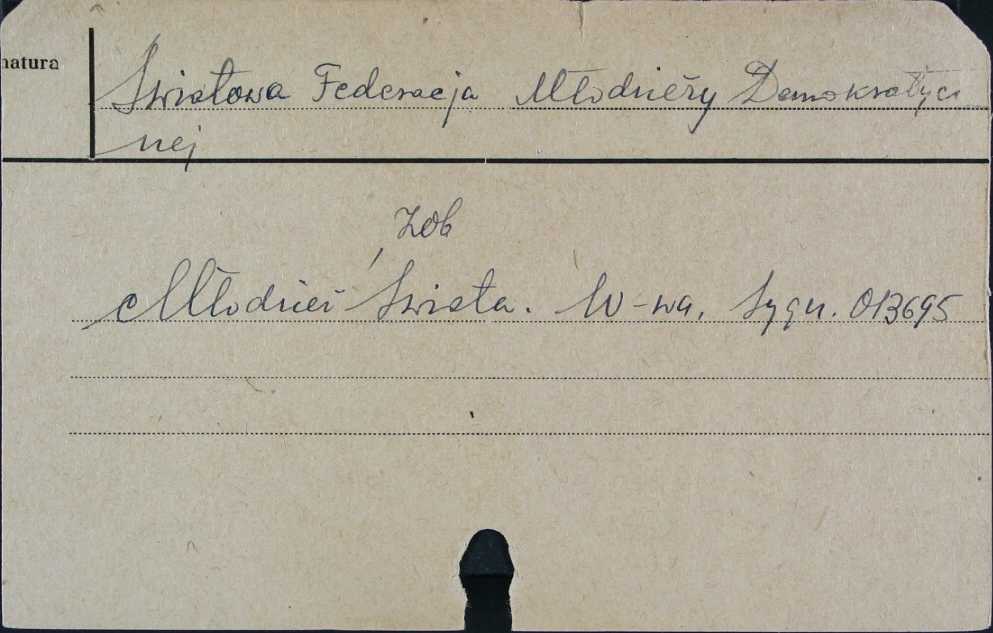 natura
Światowa Federacja Młodzieży Demokratycz
nej
Zob
Młodzież Świata. W-wa. Sygn. 013695